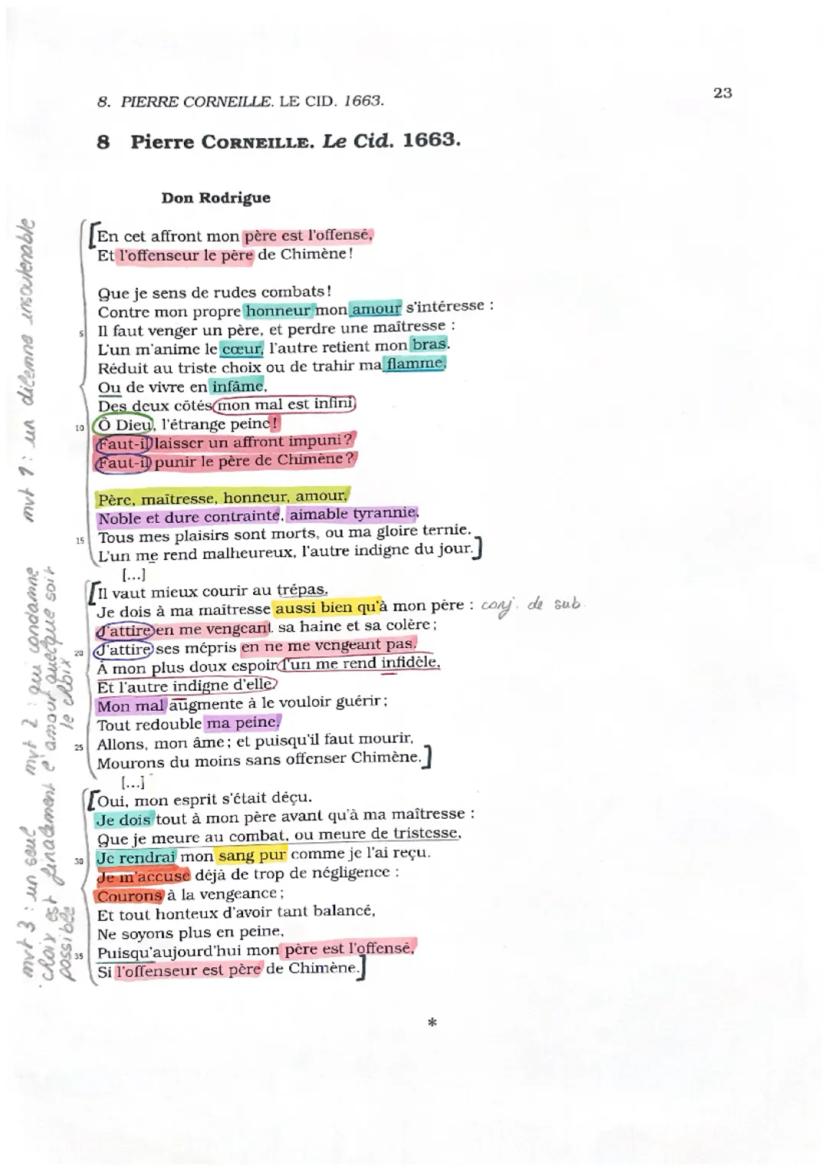 8. PIERRE CORNEILLE. LE CID. 1663.
23
8 Pierre CORNEILLE. Le Cid. 1663.
Don Rodrigue
mvt 1 : un dilemne insoutenable
[En cet affront mon père est l'offensé,
Et l'offenseur le père de Chimène !
Que je sens de rudes combats !
Contre mon propre honneur mon amour s'intéresse :
5 Il faut venger un père, et perdre une maîtresse :
L'un m'anime le cœur, l'autre retient mon bras.
Réduit au triste choix ou de trahir ma flamme,
Ou de vivre en infâme,
Des deux côtés mon mal est infini,
10 Ô Dieu, l'étrange peine !
Faut-il laisser un affront impuni ?
Faut-il punir le père de Chimène ?
Père, maîtresse, honneur, amour,
Noble et dure contrainte, aimable tyrannie,
15 Tous mes plaisirs sont morts, ou ma gloire ternie.
L'un me rend malheureux, l'autre indigne du jour.]
[...]
mvt 2 : qui condamne
l'amour quelque soit
le choix
[Il vaut mieux courir au trépas.
Je dois à ma maîtresse aussi bien qu'à mon père : conj. de sub
J'attire en me vengeant sa haine et sa colère ;
20 J'attire ses mépris en ne me vengeant pas.
À mon plus doux espoir l'un me rend infidèle,
Et l'autre indigne d'elle.
Mon mal augmente à le vouloir guérir ;
Tout redouble ma peine.
25 Allons, mon âme ; et puisqu'il faut mourir,
Mourons du moins sans offenser Chimène.]
[...]
mvt 3 : un seul
choix est finalement
possible
[Oui, mon esprit s'était déçu.
Je dois tout à mon père avant qu'à ma maîtresse :
Que je meure au combat, ou meure de tristesse,
30 Je rendrai mon sang pur comme je l'ai reçu.
Je m'accuse déjà de trop de négligence :
Courons à la vengeance ;
Et tout honteux d'avoir tant balancé,
Ne soyons plus en peine,
35 Puisqu'aujourd'hui mon père est l'offensé,
Si l'offenseur est père de Chimène.]
*